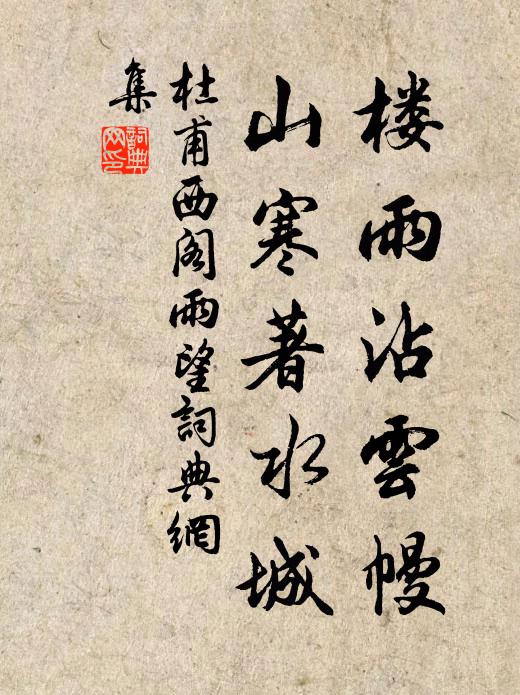 楼雨沾雲幔
山寒著水城
杜甫西阁雨望詞典網
集
詞典
网印